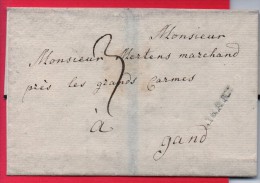 Monsieur
Monsieur Mertens marchand
près les grands Carmes
à
gand
3